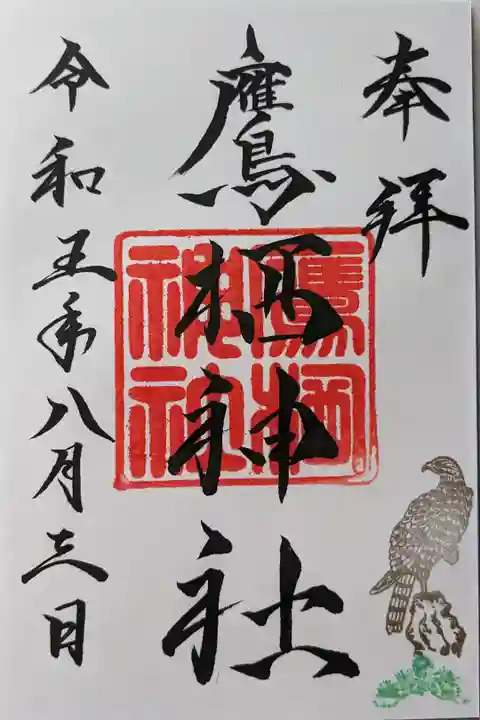 奉拝
鷹栖神社
鷹栖神社
令和五年八月三日